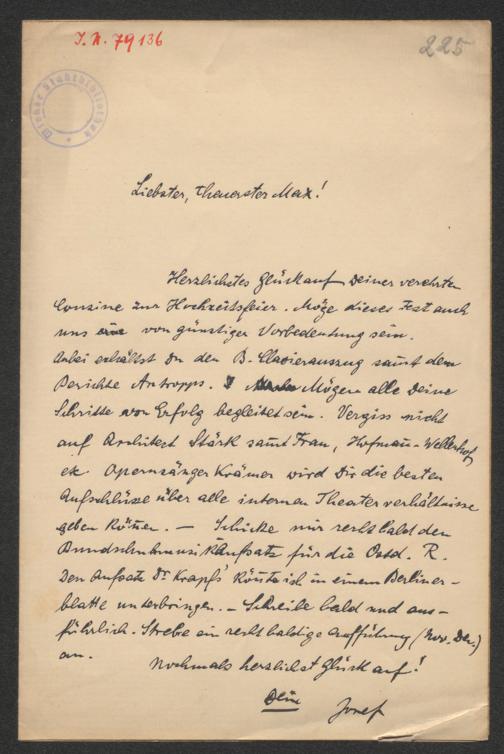 I. N. 79136
225
Wiener Stadtbibliothek
Liebster, theuerster Max!
Herzlichstes Glückauf Deiner verehrten
Cousine zur Hochzeitsfeier. Möge dieses Fest auch
uns von günstiger Vorbedeutung sein.
Anbei erhältst Du den B. Clavierauszug samt dem
Berichte Antropps. Mögen alle Deine
Schritte von Erfolg begleitet sein. Vergiss nicht
auf Architect Stärk samt Frau, Hofmann-Wellenhof,
etc. Opernsänger Krämer wird Dir die besten
Aufschlüsse über alle internen Theaterverhältnisse
geben können. — Schicke mir recht bald den
Bundschuhmusikaufsatz für die Ostd. R.
Den Aufsatz Dr. Krapfs' könnte ich in einem Berliner-
blatte unterbringen. — Schreibe bald und aus-
führlich. Strebe ein recht baldige Aufführung (Nov. Dec.)
an. Nochmals herzlichst Glück auf!
Dein
Josef